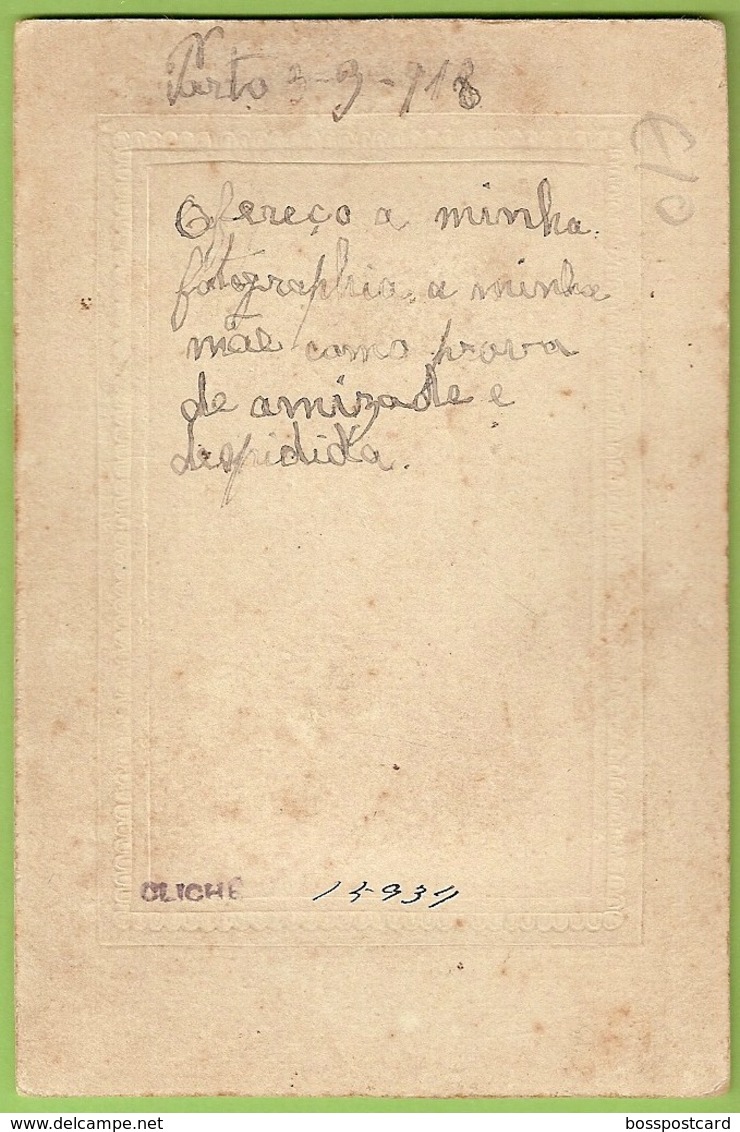 Porto 3-9-918
Ofereço a minha
fotographia a minha
mãe como prova
de amizade e
despidida.
CLICHÉ 15931
bosspostcard